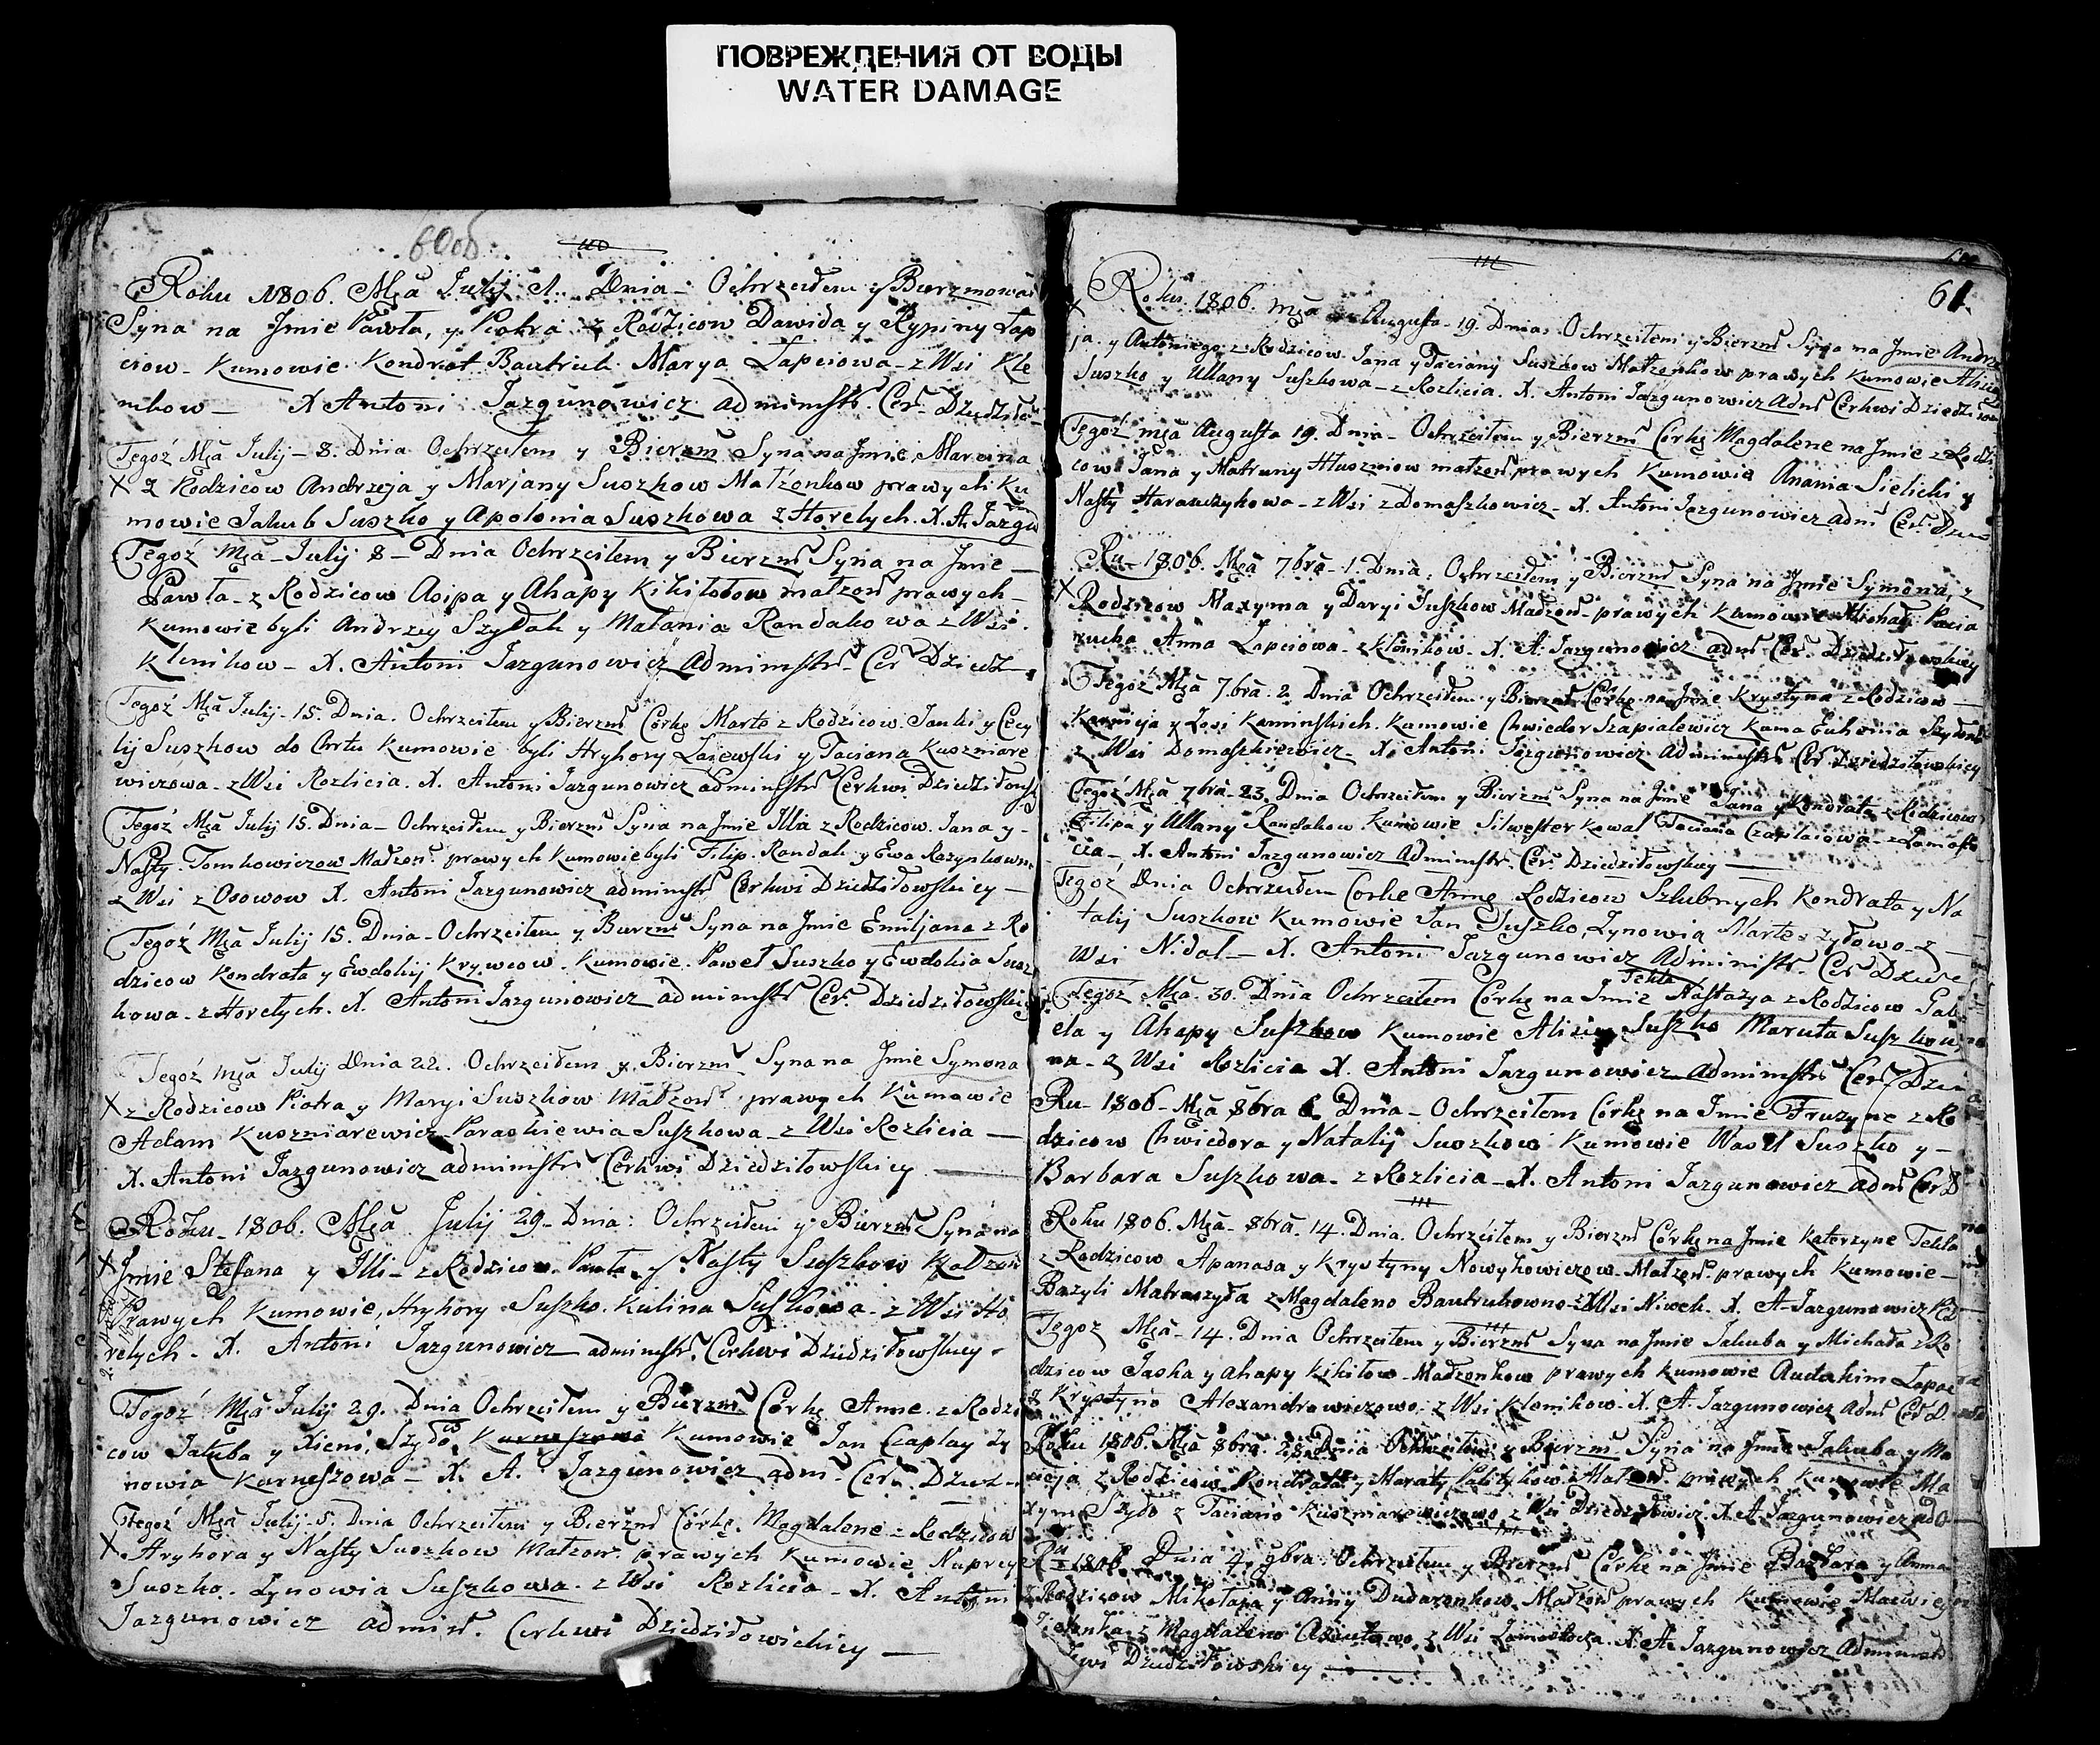 ПОВРЕЖДЕНИЯ ОТ ВОДЫ
WATER DAMAGE
60об
110
Roku 1806. Mca Julij 1. Dnia Ochrzciłem y Bierzmował
Syna na Jmie Pawła, y Piotra z Rodzicow Dawida y Rypiny Łap
ciow Kumowie Kondrat Bautruk Marya Łapciowa z Wsi Kle
nikow X Antoni Jazgunowicz administr. Cer. Dziedziło
Tegoż Mca Julij 8. Dnia Ochrzciłem y Bierzm Syna na Jmie Marcina
X z Rodzicow Andrzeja y Marjany Suszkow Małżonkow prawych Ku
mowie Jakub Suszko y Apolonia Suszkowa z Horelych. X. A. Jazgu
Tegoż Mca Julij 8 Dnia Ochrzciłem y Bierzm Syna na Jmie
Pawła z Rodzicow Aoipa y Ahapy Kikiłotow małżon prawych
Kumowie byli Andrzey Szydłak y Małania Randakowa z Wsi
Klenikow X. Antoni Jazgunowicz Administr Cer Dziedz
Tegoż Mca Julij 15. Dnia. Ochrzciłem y Bierzm Corkę Marte z Rodzicow Janki y Cecy
lij Suszkow do Chrtu Kumowie byli Hryhory Łazewski y Taciana Kuszniare
wiczowa z Wsi Rozlicia. X. Antoni Jazgunowicz administr Cerkwi Dziedziłows
Tegoż Mca Julij 15. Dnia Ochrzciłem y Bierzm Syna na Jmie Illia z Rodzicow. Jana y
Nasty Tomkowiczow Małżon. prawych Kumowie byli Filip Randak y Ewa Razynkowna
z Wsi z Osowow X. Antoni Jazgunowicz administr Cerkwi Dziedziłowskiey
Tegoż Mca Julij 15. Dnia Ochrzciłem y Bierzm Syna na Jmie Emiljana z Ro
dzicow Kondrata y Ewdokij Krywcow. Kumowie Paweł Suszko y Ewdokia Susz
kowa z Horelych. X. Antoni Jazgunowicz administr Cer. Dziedziłowskiey
Tegoż Mca Julij Dnia 22. Ochrzciłem y Bierzm Syna na Jmie Symona
X z Rodzicow Piotra y Maryi Suszkow Małżon prawych Kumowie
Adam Kuszniarewicz Paraskiewia Suszkowa z Wsi Rozlicia
X. Antoni Jazgunowicz administr Cerkwi Dziedziłowskiey
Roku 1806. Mca Julij 29. Dnia: Ochrzciłem y Bierzm Syna na
X Jmie Stefana y Illi z Rodzicow Pawła y Nasty Suszkow Małżon
Prawych Kumowie, Hryhory Suszko. Kulina Suszkowa z Wsi Ho
relych. X. Antoni Jazgunowicz administr. Cerkwi Dziedziłowskiey
Tegoż Mca Julij 29. Dnia Ochrzciłem y Bierzm Córkę Anne z Rodzi
cow Jakuba y Xieni, Szydło Kumowie Jan Czaplay Zy
nowia Karneszowa X. A. Jazgunowicz adm. Cer. Dziedz
Tegoż Mca Julij 5. Dnia Ochrzciłem y Bierzm Córkę Magdalene z Rodzicow
X Aryhora y Nasty Suszkow Małżon. prawych Kumowie Nuprey
Suszko. Zynowia Suszkowa z Wsi Rozlicia X. Antoni
Jazgunowicz admin. Cerkwi Dziedziłowickiey
111
61.
X Roku 1806. Mca Augusta 19. Dnia. Ochrzciłem y Bierzm Syna na Jmie Andrze
ja y Antoniego z Rodzicow Jana y Taciany Suszkow Małżonkow prawych Kumowie Aliziey
Suszko y Ullany Suszkowa z Rozlicia. X. Antoni Jazgunowicz Adm Cerkwi Dziedziłow
Tegoż Mca Augusta 19. Dnia Ochrzciłem y Bierzm Corkę Magdalene na Jmie z Rodzi
cow Jana y Matruny Hłuszniow małżon prawych Kumowie Anania Sielicki y
Nasty Harauczykowa z Wsi z Domaszkowicz X. Antoni Jazgunowicz adm Cer. Dzie
Ru 1806. Mca 7bra 1. Dnia. Ochrzciłem y Bierzm Syna na Jmie Symona, z
X Rodzicow Maxyma y Daryi Suszkow Małżon prawych Kumowie Michał Pacia
rucha Anna Łapciowa z Klenikow. X. A. Jazgunowicz adm Cer. Dziedziłowskiey
Tegoż Mca 7bra 2 Dnia Ochrzciłem y Bierzm Córkę na Jmie Krystyna z Rodzicow
Karnieja y Zosi Kaminskich. Kumowie Chwiedor Szapialewicz Kuma Euhenia Szydłow
z Wsi Domaszkiewicz X. Antoni Jazgunowicz Administr Cer Dziedziłowskiey
Tegoż Mca 7bra 23. Dnia Ochrzciłem y Bierzm Syna na Jmie Jana y Kondrata z Rodzicow
Filipa y Ullany Randakow Kumowie Silwester Kowal Taciana Czaplaiowa z Zamosto
cza X. Antoni Jazgunowicz Administr Cer. Dziedziłowskiey
Tegoż Dnia Ochrzciłem Corke Anne Rodzicow Szlubnych Kondrata y Na
talij Suszkow Kumowie Jan Suszko, Zynowia Marte Szyłowo z
Wsi Nidal X. Antoni Jazgunowicz Administr. Cer Dziedz
Tekla
Tegoż Mca 30. Dnia Ochrzciłem Córkę na Jmie Nastazya z Rodzicow Gab
ela y Ahapy Suszkow Kumowie Aliziey Suszko Maruta Suszkow
na z Wsi Rozlicia X. Antoni Jazgunowicz Administr Cer Dzie
Ru 1806 Mca 8bra 6 Dnia Ochrzciłem Córkę na Jmie Fruzyne z Ro
dzicow Chwiedora y Natalij Suszkow Kumowie Wasil Suszko y
Barbara Suszkowa z Rozlicia X. Antoni Jazgunowicz adm Cer D
Roku 1806. Mca 8bra 14. Dnia. Ochrzciłem y Bierzm Córkę na Jmie Katerzyne Tekla
z Rodzicow Apanasa y Krystyny Nowykowiczow Małżon prawych Kumowie
Bazyli Matruszyła z Magdaleno Bautrukowno z Wsi Niwek. X. A. Jazgunowicz
Tegoż Mca 14. Dnia Ochrzciłem y Bierzm Syna na Jmie Jakuba y Michała z Ro
dzicow Jaska y Ahapy Kikiłow Małżonkow prawych Kumowie Audakim Łopac
z Krystyno Alexandrowiczowo z Wsi Klenikow. X. A. Jazgunowicz Adm Cer D.
Roku 1806. Mca 8bra 28. Dnia Ochrzciłem y Bierzm Syna na Jmie Jakuba y Ma
cieja z Rodzicow Kondrata y Maruty Małżon prawych Kumowie Ma
xym Szyło z Taciano Kuszniarewiczowo z Wsi Dziedziłowicz X. A. Jazgunowicz
Ru 1806 Dnia 4. 9bra Ochrzciłem y Bierzm Córkę na Jmie Barbara y Anna
z Rodzicow Mikołaja y Anny Dudaronkow Małżon prawych Kumowie Maciey
z Magdaleno z Wsi Zamostocza. X. A. Jazgunowicz Administr
Dziedziłowskiey